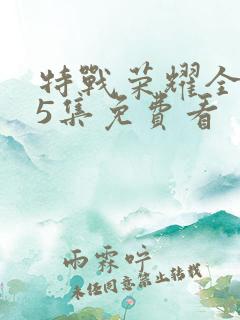 特戰榮耀全
5集免費看
雨霖吟
未经同意禁止转载